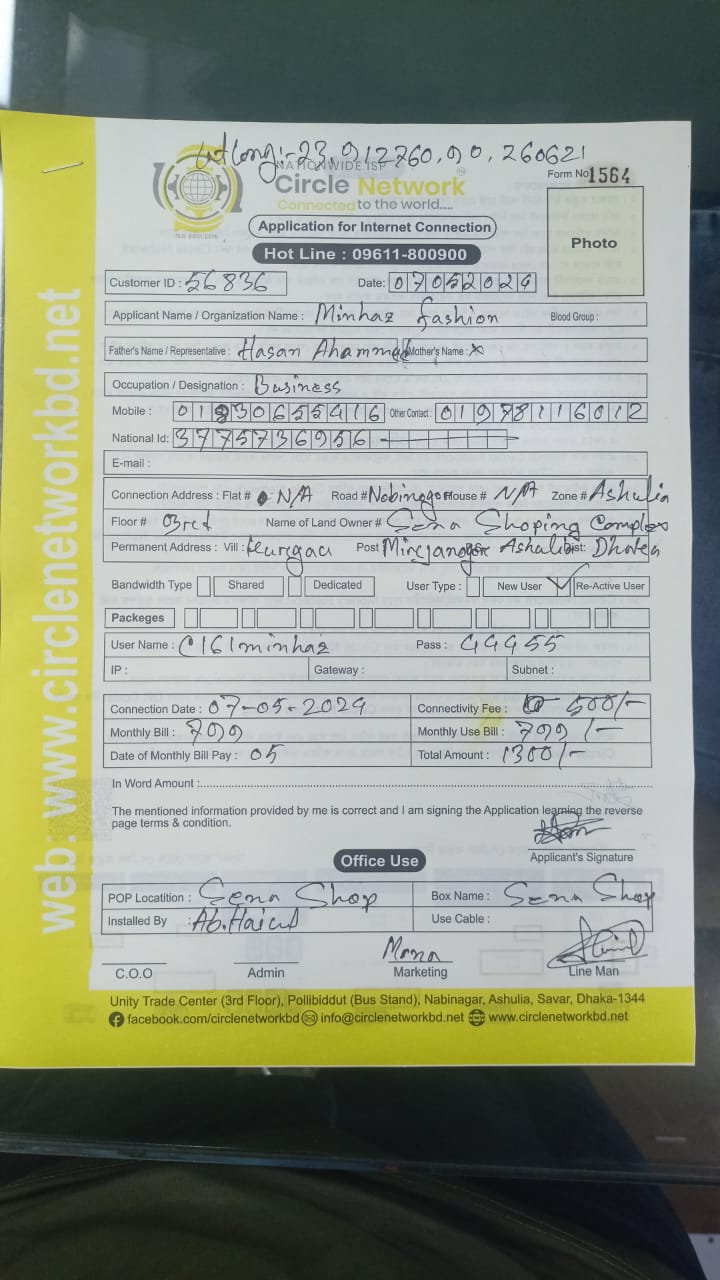 Lat Long:- 23.912760, 90.260621
NATIONWIDE ISP
Circle Network
Connected to the world.....
ISO 9001:2015
Form No 1564
Application for Internet Connection
Photo
Hot Line : 09611-800900
Customer ID : 56836 Date: 07052024
Applicant Name / Organization Name : Minhaz fashion Blood Group :
Father's Name / Representative : Hasan Ahammed Mother's Name : X
Occupation / Designation : Business
Mobile : 01830655416 Other Contact : 01978116012
National Id: 3775736956
E-mail :
Connection Address : Flat # N/A Road # Nobinggor House # N/A Zone # Ashulia
Floor # 03rd Name of Land Owner # Sena Shoping Complex
Permanent Address : Vill : Post Mirejanogor Ashulia Dist: Dhaka
Bandwidth Type Shared Dedicated User Type : New User Re-Active User
Packeges
User Name : C161minhaz Pass : 44455
IP : Gateway : Subnet :
Connection Date : 07-05-2024 Connectivity Fee : 500/-
Monthly Bill : 799 Monthly Use Bill : 799 /-
Date of Monthly Bill Pay : 05 Total Amount : 1300/-
In Word Amount :
The mentioned information provided by me is correct and I am signing the Application learning the reverse
page terms & condition.
Applicant's Signature
Office Use
POP Locatition : Sena Shop Box Name : Sena Shop
Installed By : Ab. Use Cable :
Mona
C.O.O Admin Marketing Line Man
Unity Trade Center (3rd Floor), Pollibiddut (Bus Stand), Nabinagar, Ashulia, Savar, Dhaka-1344
facebook.com/circlenetworkbd info@circlenetworkbd.net www.circlenetworkbd.net
web: www.circlenetworkbd.net